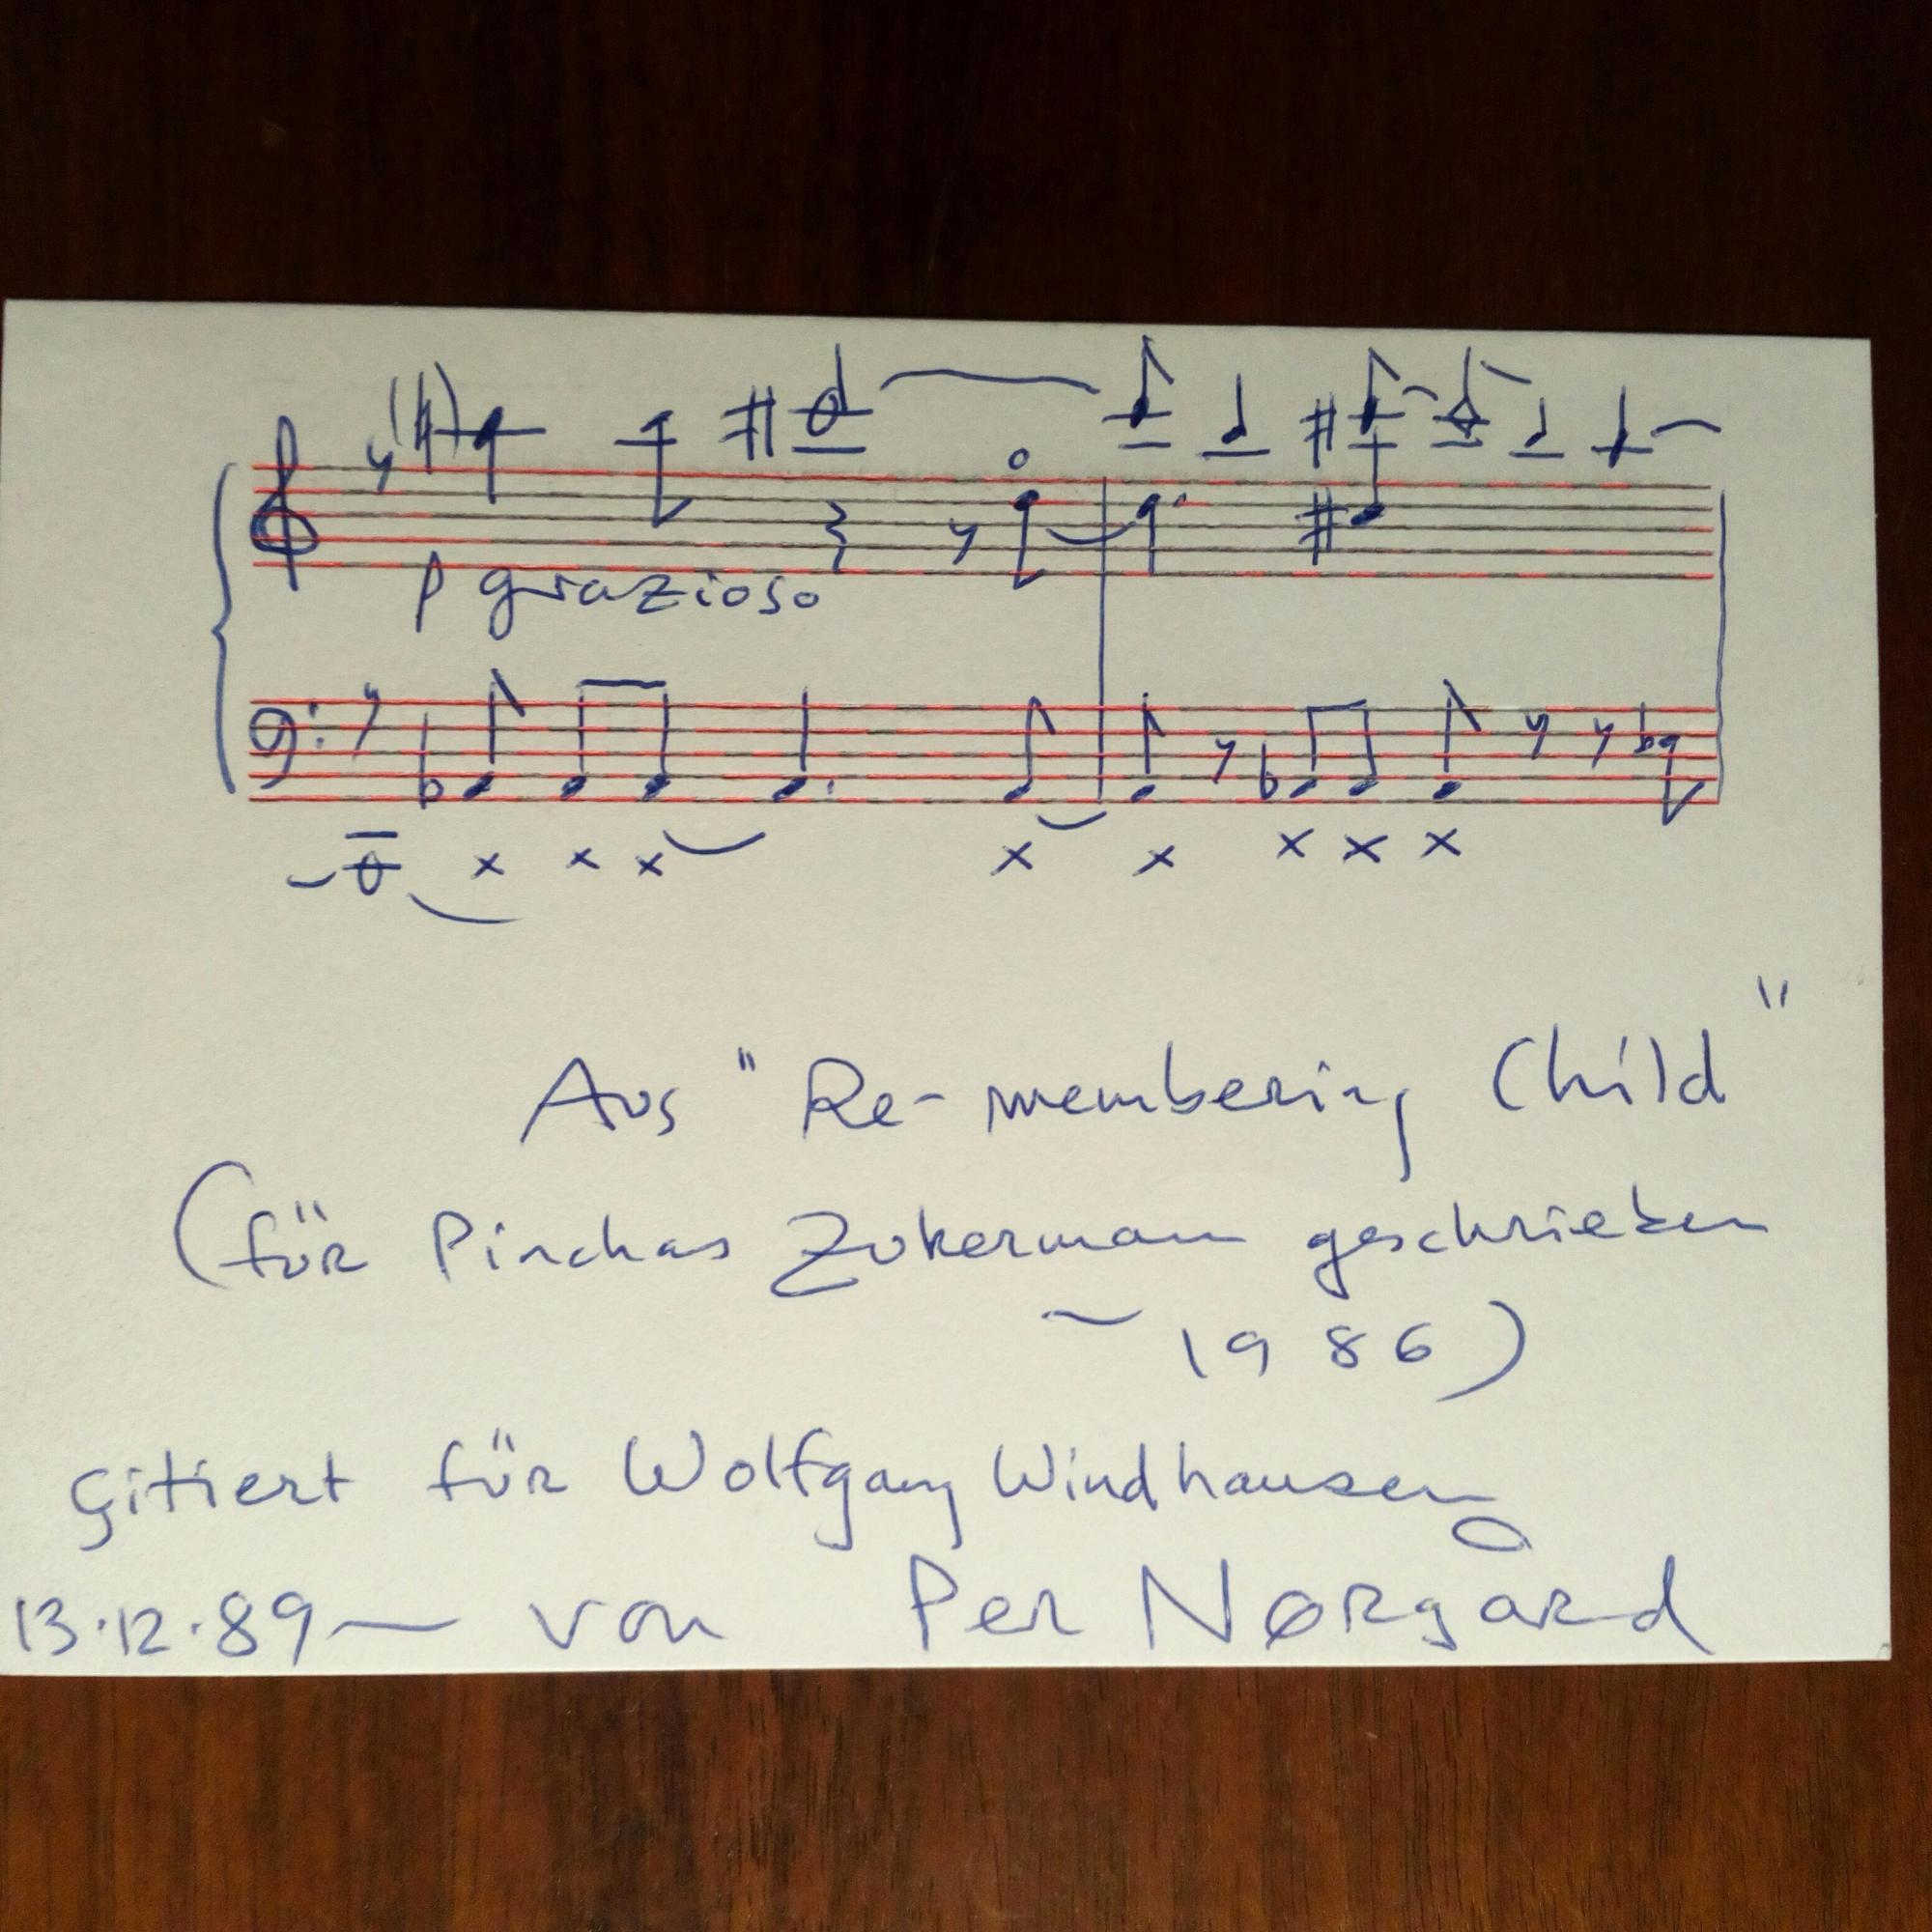 p grazioso
Aus "Re-membering Child"
(für Pinchas Zukerman geschrieben
~ 1986)
Çitiert für Wolfgang Windhausen
13.12.89 — von Per Nørgård